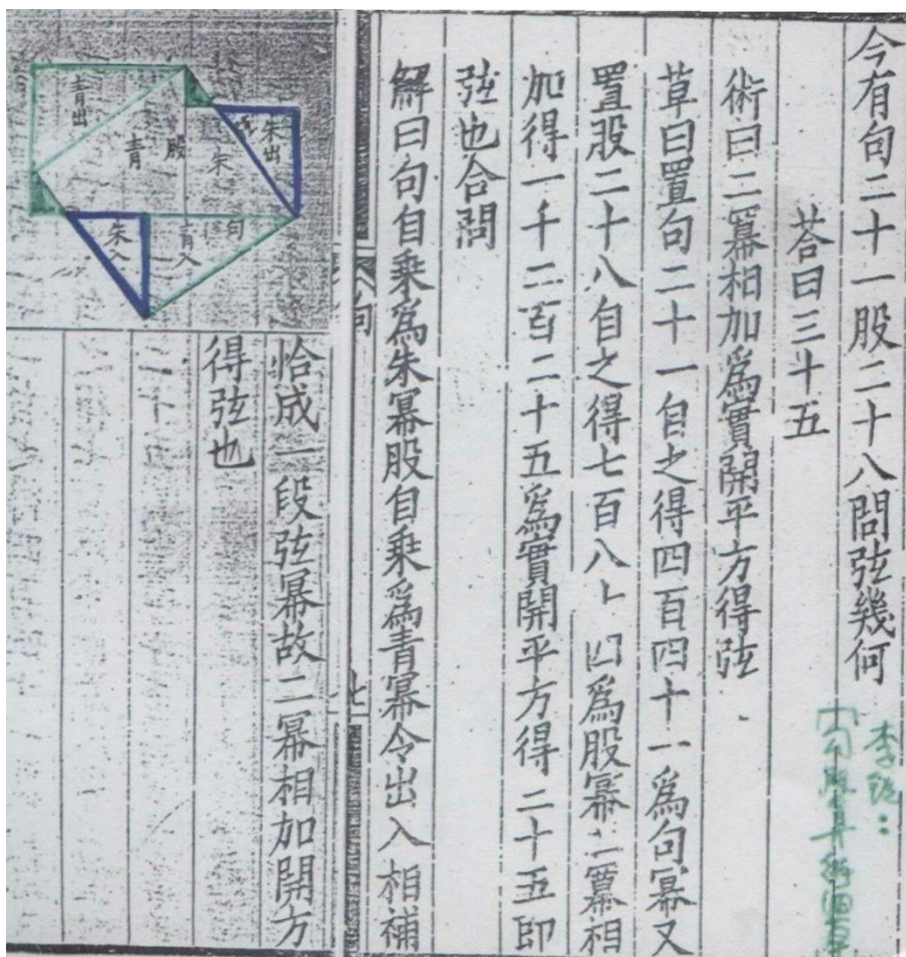 今有句二十一股二十八問弦幾何
荅曰三十五
術曰二冪相加爲實開平方得弦
草曰置句二十一自之得四百四十一爲句冪又
置股二十八自之得七百八十四爲股冪二冪相
加得一千二百二十五爲實開平方得二十五即
弦也合問
解曰句自乘爲朱冪股自乘爲青冪令出入相補
恰成一段弦冪故二冪相加開方
得弦也
李锐：
【勾股算術细草】
朱出
朱
股
青
青出
句
青入
朱入